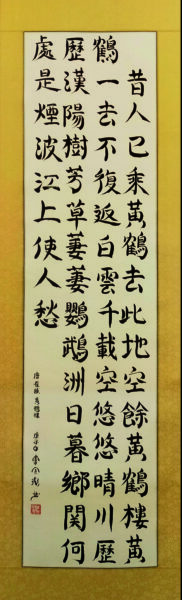 昔人已乘黃鶴去此地空餘黃鶴樓黃
鶴一去不復返白雲千載空悠悠晴川歷
歷漢陽樹芳草萋萋鸚鵡洲日暮鄉関何
處是煙波江上使人愁
唐崔顥黃鶴樓